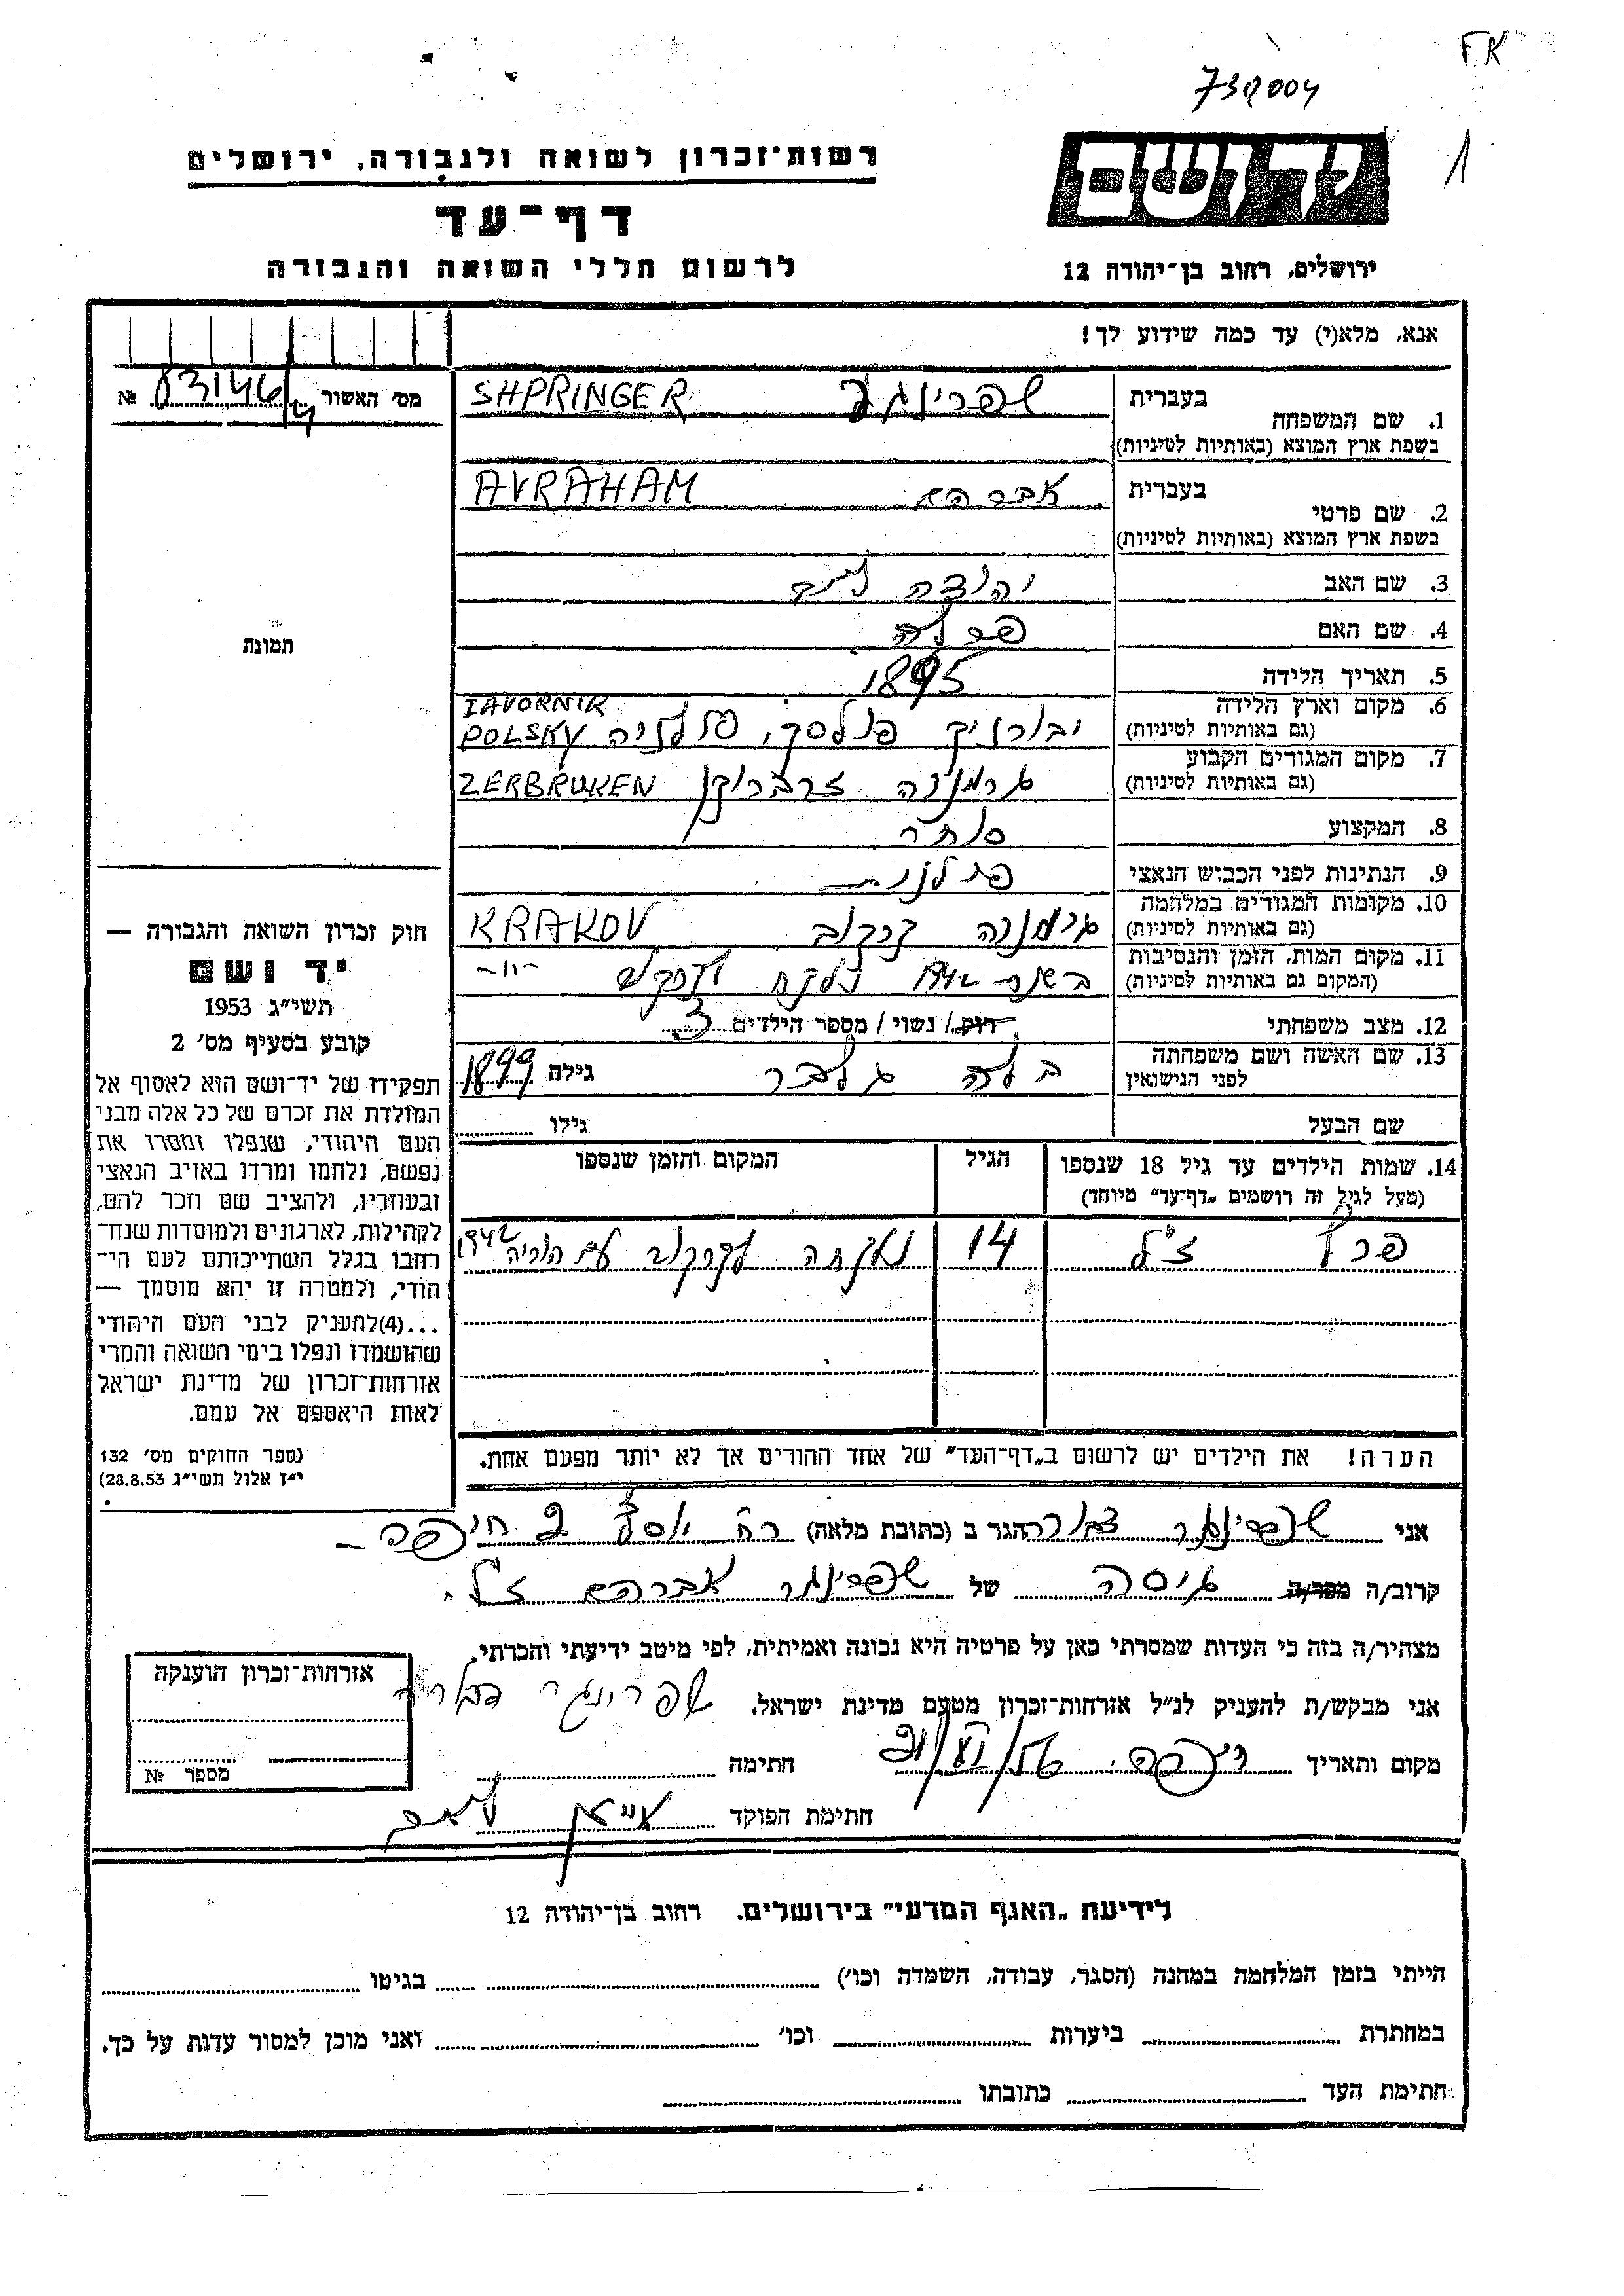 FK
1
רשות־זכרון לשואה ולגבורה, ירושלים
דף־עד
לרשום חללי השואה והגבורה
ידושם
ירושלים, רחוב בן־יהודה 12
אנא, מלא(י) עד כמה שידוע לך!
מס׳ האשור № 83146/4
1. שם המשפחה בעברית שפרינגר SHPRINGER
בשפת ארץ המוצא (באותיות לטיניות)
2. שם פרטי בעברית אברהם AVRAHAM
בשפת ארץ המוצא (באותיות לטיניות)
3. שם האב יהודה
4. שם האם פרלה
5. תאריך הלידה 1895
6. מקום וארץ הלידה (גם באותיות לטיניות) יבורניק פולסקי, פולניה IAVORNIK POLSKY
7. מקום המגורים הקבוע (גם באותיות לטיניות) גרמניה זרברוקן ZERBRUKEN
8. המקצוע סוחר
9. הנתינות לפני הכבוש הנאצי פולנית
10. מקומות המגורים במלחמה (גם באותיות לטיניות) גרמניה קרקוב KRAKOV
11. מקום המות, הזמן והנסיבות (המקום גם באותיות לטיניות) בשנת 1942 נלקח מקרקוב -״-
12. מצב משפחתי רוק / נשוי / מספר הילדים 3
13. שם האשה ושם משפחתה לפני הנישואין בלה גלבר גילה 1899
שם הבעל גילו
14. שמות הילדים עד גיל 18 שנספו (מעל לגיל זה רושמים „דף־עד״ מיוחד) הגיל המקום והזמן שנספו
פרץ ז״ל 14 נלקחה מקרקוב עם הוריה 1942
הערה! את הילדים יש לרשום ב„דף־העד״ של אחד ההורים אך לא יותר מפעם אחת.
תמונה
חוק זכרון השואה והגבורה —
יד ושם
תשי״ג 1953
קובע בסעיף מס׳ 2
תפקידו של יד־ושם הוא לאסוף אל
המולדת את זכרם של כל אלה מבני
העם היהודי, שנפלו ומסרו את
נפשם, נלחמו ומרדו באויב הנאצי
ובעוזריו, ולהציב שם וזכר להם,
לקהילות, לארגונים ולמוסדות שנח־
רבו בגלל השתייכותם לעם הי־
הודי, ולמטרה זו יהא מוסמך —
...(4)להעניק לבני העם היהודי
שהושמדו ונפלו בימי השואה והמרי
אזרחות־זכרון של מדינת ישראל
לאות היאספם אל עמם.
(ספר החוקים מס׳ 132
י״ז אלול תשי״ג 28.8.53)
אני שפרינגר הגר ב (כתובת מלאה) רח חיפה –
קרוב/ה מכר/ה גיסה של שפרינגר אברהם ז״ל.
מצהיר/ה בזה כי העדות שמסרתי כאן על פרטיה היא נכונה ואמיתית, לפי מיטב ידיעתי והכרתי.
אני מבקש/ת להעניק לנ״ל אזרחות־זכרון מטעם מדינת ישראל. שפרינגר
מקום ותאריך חיפה חתימה
חתימת הפוקד
אזרחות־זכרון הוענקה
מספר №
לידיעת „האגף המדעי״ בירושלים. רחוב בן־יהודה 12
הייתי בזמן המלחמה במחנה (הסגר, עבודה, השמדה וכו׳) בגיטו
במחתרת ביערות וכו׳ ואני מוכן למסור עדות על כך.
חתימת העד כתובתו